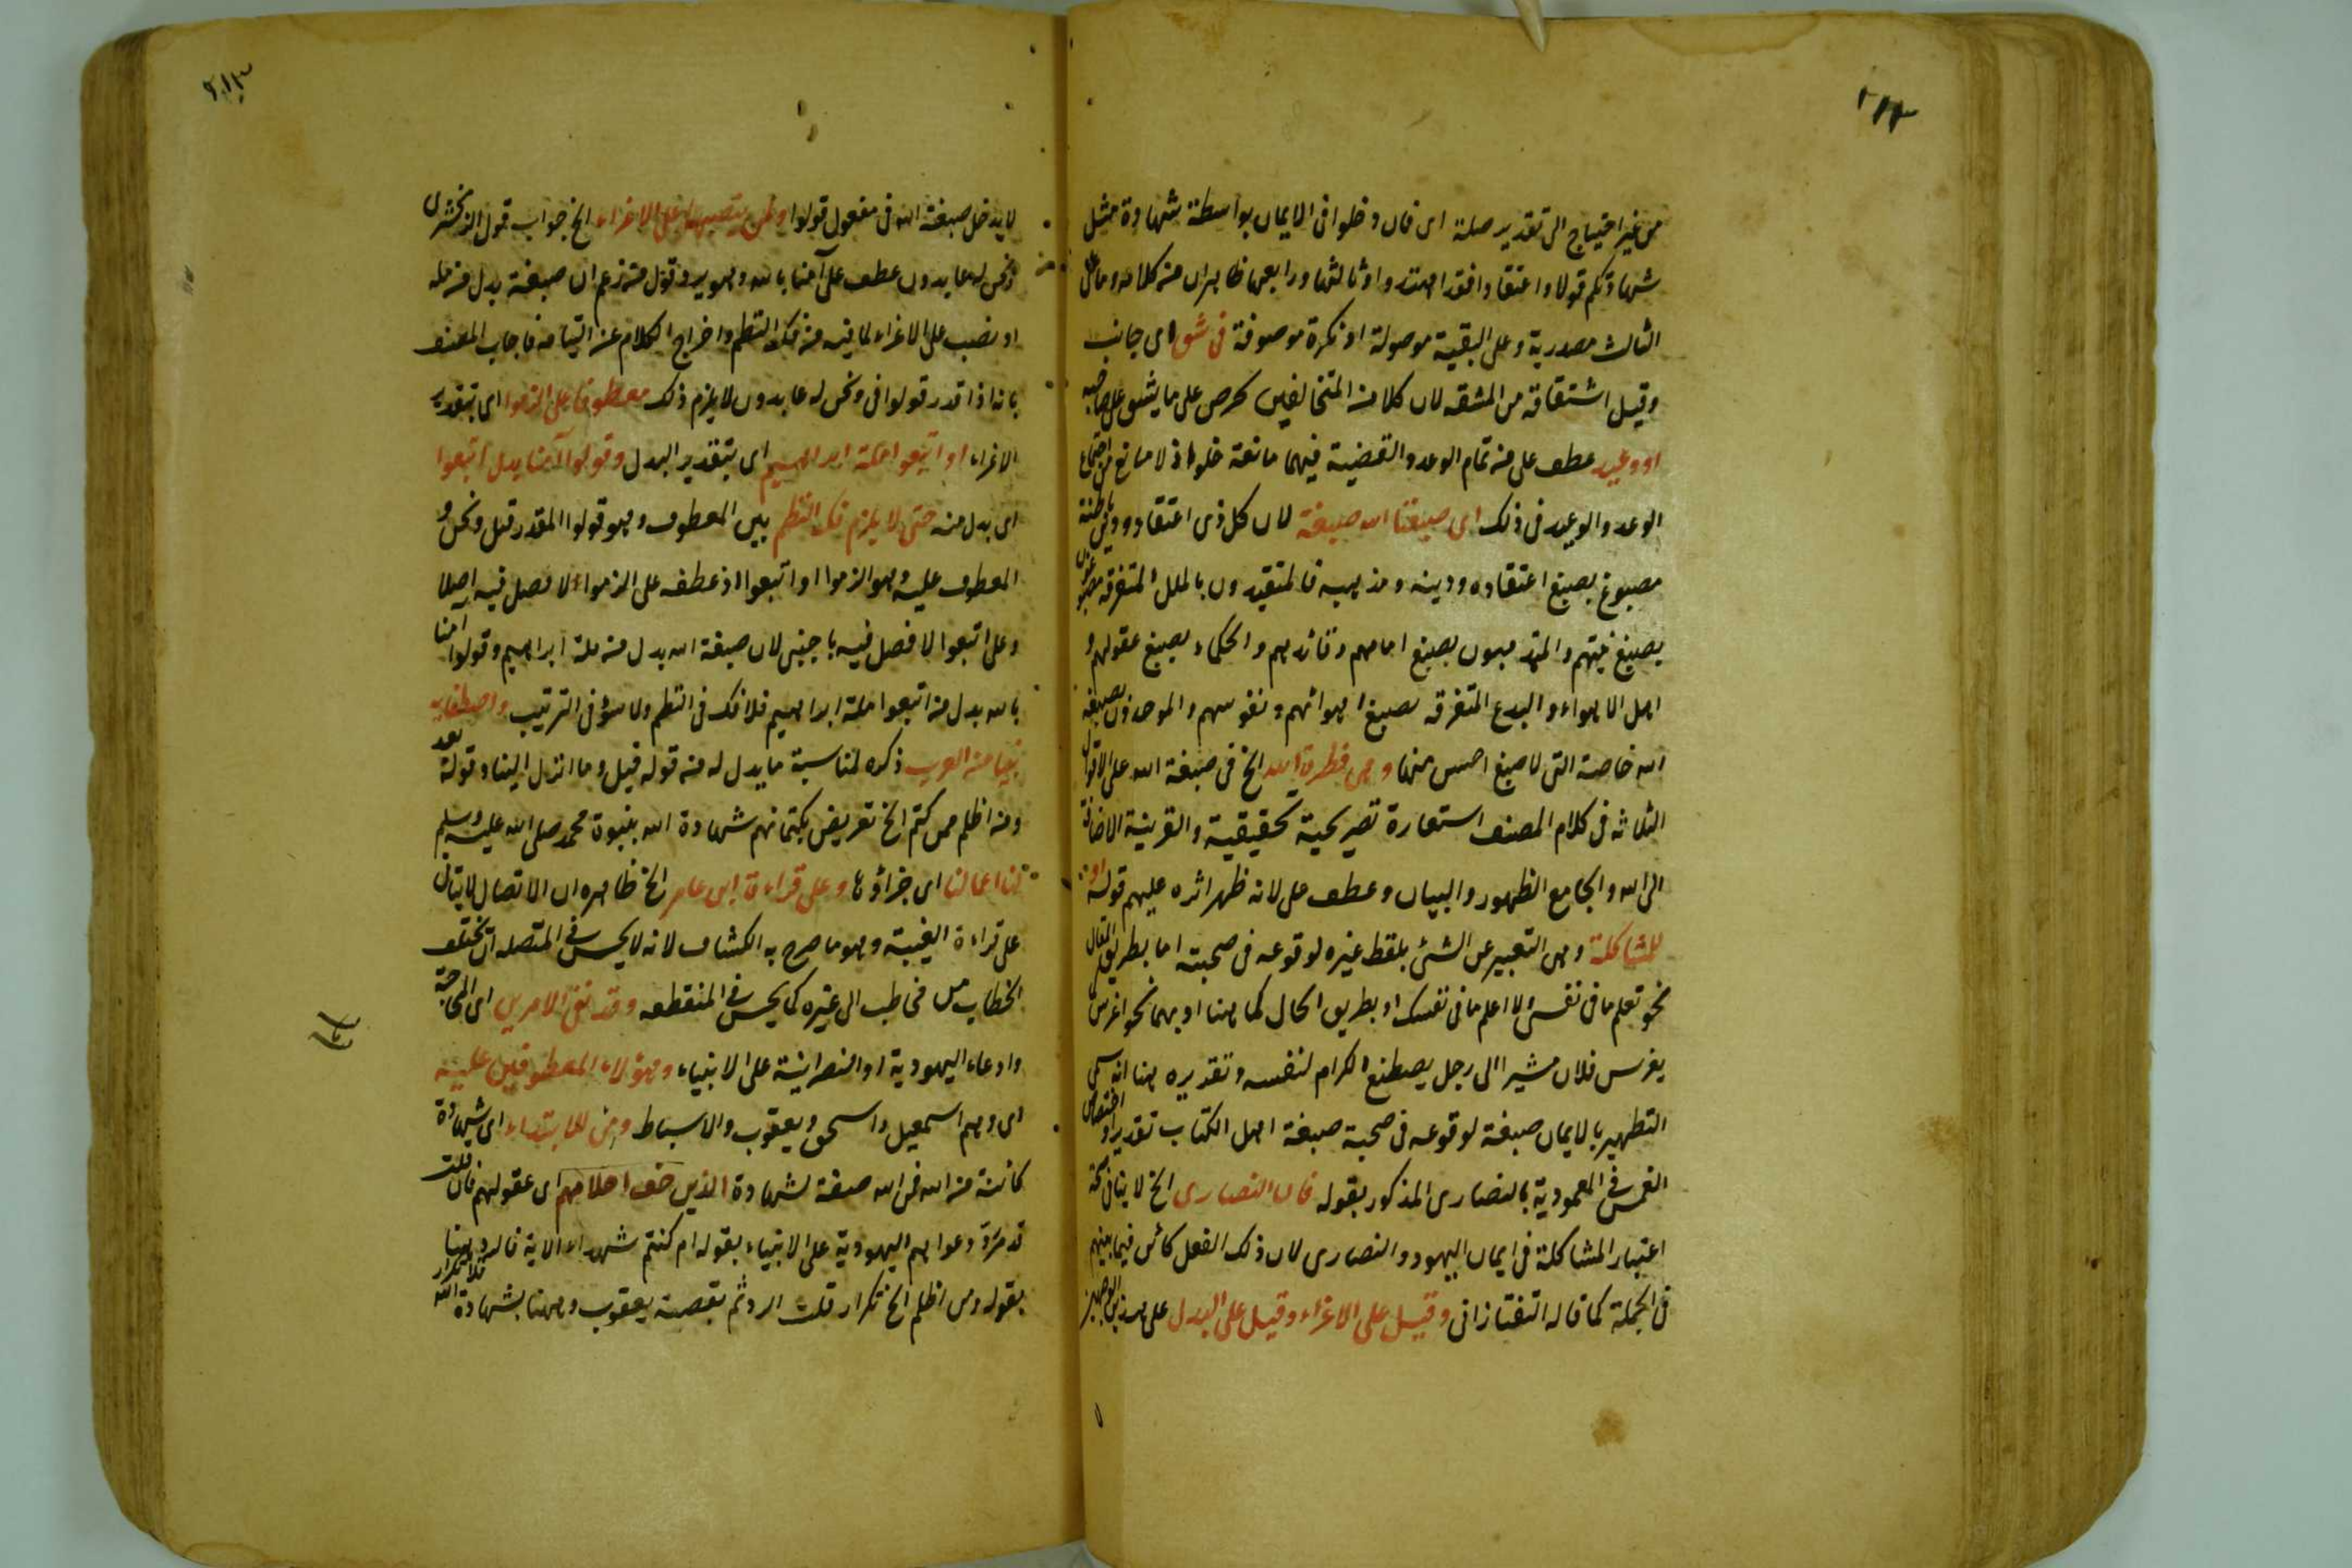 ٢١٢
من غير احتياج الى تقدير صلة اى فان دخلوا فى الايمان بواسطة شهادة مثل
شهادتكم قولا واعتقادا فقد اهتدوا وثالثها ورابعها ظاهران من كلامه وما على
الثالث مصدرية وعلى البقية موصولة او نكرة موصوفة فى شق اى جانب
وقيل اشتقاقه من المشقه لان كلا من المتخالفين يحرص على ما يشق على صاحبه
او وعيد عطف على من تمام الوعد والقضية فيهما مانعة خلو اذ لا مانع من اجتماع
الوعد والوعيد فى ذلك اى صبغنا الله صبغة لان كل ذى اعتقاد ودين باطنة
مصبوغ بصبغ اعتقاده ودينه ومذهبه فالمتقيدون بالملل المتفرقه مصبوغون
بصبغ نيتهم والمتمذهبون بصبغ امامهم وقائدهم والحكماء بصبغ عقولهم و
اهل الاهواء والبدع المتفرقه بصبغ اهوائهم ونفوسهم والموحدون بصبغة
الله خاصة التى لا صبغ احسن منها وهى فطرة الله الخ فى صبغة الله على الاقوال
الثلاثه فى كلام المصنف استعارة تصريحية تحقيقية والقرينة الاضافة
الى الله والجامع الظهور والبيان وعطف على لانه ظهر اثره عليهم قوله او
للمشاكلة وهى التعبير عن الشئ بلفظ غيره لوقوعه فى صحبته اما بطريق المقال
نحو تعلم ما فى نفسى ولا اعلم ما فى نفسك او بطريق الحال كما هنا او بهما نحو اغرس
يغرس فلان مشيرا الى رجل يصطنع الكرام لنفسه وتقديره هنا انه سمى
التطهير بالايمان صبغة لوقوعه فى صحبة صبغة اهل الكتاب تقديرا واختصاص
الغمس فى المعمودية بالنصارى المذكور بقوله فان النصارى الخ لا ينافى صحة
اعتبار المشاكلة فى ايمان اليهود والنصارى لان ذلك الفعل كائن فيما بينهم
فى الجملة كما قاله التفتازانى وقيل على الاغراء وقيل على البدل على هذين الوجهين
٢١٣
لا يدخل صبغة الله فى مفعول قولوا ولمن ينصبها على الاغراء الخ جواب قول الزمخشرى
ونحن له عابدون عطف على آمنا بالله وهو يرد قول من زعم ان صبغة بدل من ملة
او نصب على الاغراء لما فيه من فك النظم واخراج الكلام عن التيامه فاجاب المصنف
بانه اذا قدر قولوا فى ونحن له عابدون لا يلزم ذلك معطوفا على الزموا اى بتقدير
الاغراء او اتبعوا ملة ابراهيم اى بتقدير البدل وقولوا آمنا بدل اتبعوا
اى بدل منه حتى لا يلزم فك النظم بين المعطوف وهو قولوا المقدر قبل ونحن و
المعطوف عليه وهو الزموا او اتبعوا اذ عطفه على الزموا لا فصل فيه اصلا
وعلى اتبعوا لا فصل فيه باجنبى لان صبغة الله بدل من ملة ابراهيم وقولوا امنا
بالله بدل من اتبعوا ملة ابراهيم فلا فك فى النظم ولا سوء فى الترتيب واصطفاء
نبيا من العرب ذكره لمناسبة ما يدل له من قوله قبل وما انزل الينا وقوله بعد
ومن اظلم ممن كتم الخ تعريض بكتمانهم شهادة الله بنبوة محمد صلى الله عليه وسلم
لنا اعمالنا اى جزاؤها وعلى قراءة ابن عامر الخ ظاهره ان الاتصال لا يتأتى
على قراءة الغيبة وهو ما صرح به الكشاف لانه لا يحسن فى المتصله ان يختلف
الخطاب من مخاطب الى غيره كما يحسن فى المنقطعه وقد نفى الامرين اى المحاجة
وادعاء اليهودية او النصرانية على الانبياء وهؤلاء المعطوفين عليه
اى وهم اسمعيل واسحق ويعقوب والاسباط ومن للابتداء اى شهادة
كائنة من الله فمن الله صفة لشهادة الذين خف احلامهم اى عقولهم فان قلت
قد مر رد دعواهم اليهودية على الانبياء بقوله ام كنتم شهداء الاية فالرد هنا
بقوله ومن اظلم الخ تكرار قلت الرد ثم بقصة يعقوب وههنا بشهادة الله فلا تكرار